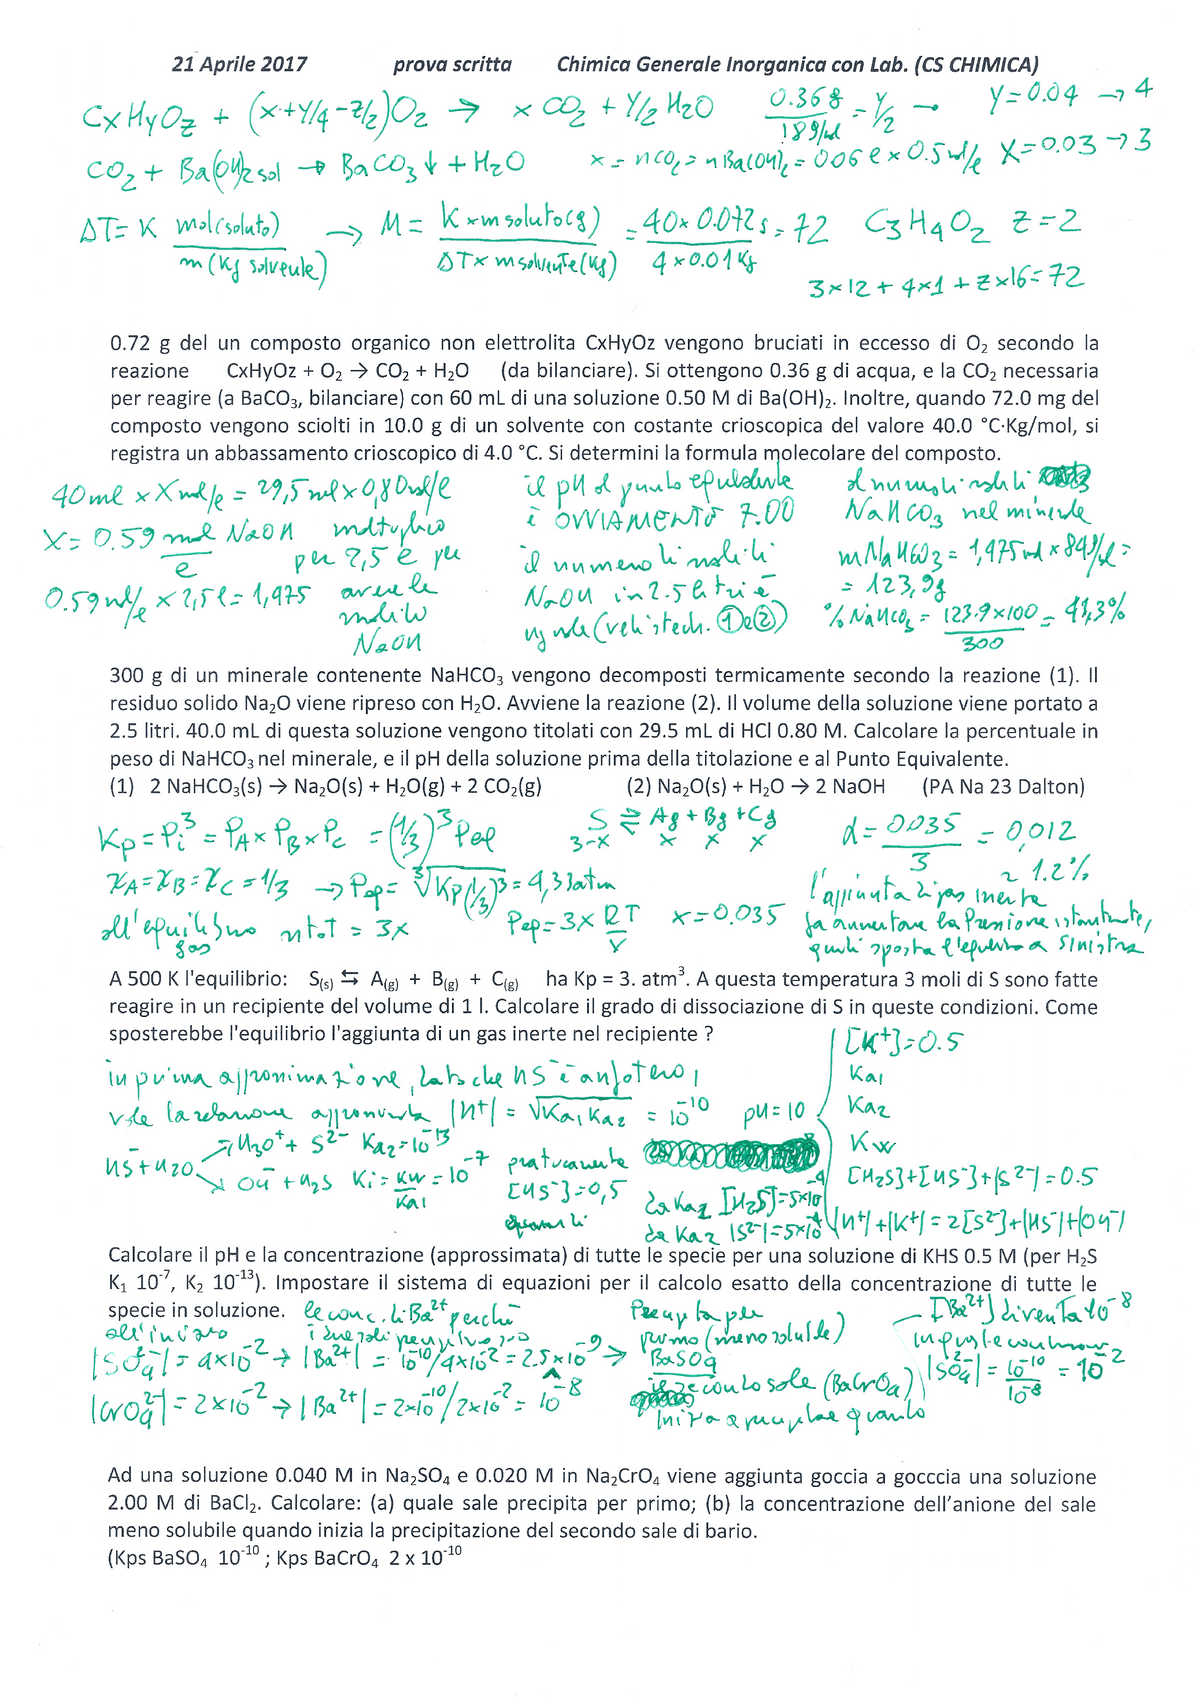 21 Aprile 2017 prova scritta Chimica Generale Inorganica con Lab. (CS CHIMICA)
CxHyOz + (x+y/4-z/2)O2 → x CO2 + y/2 H2O 0.368/18g/mol = y/2 → y=0.04 → 4
CO2 + Ba(OH)2 sol → BaCO3↓ + H2O x = nCO2 = nBa(OH)2 = 0.06 l x 0.5 mol/l X=0.03 → 3
ΔT= K mol(soluto)/m(Kg solvente) → M = K x m soluto(g)/ΔT x m solvente(Kg) = 40x0.072g/4x0.01Kg = 72 C3H4O2 z=2
3x12 + 4x1 + zx16=72
0.72 g del un composto organico non elettrolita CxHyOz vengono bruciati in eccesso di O2 secondo la
reazione CxHyOz + O2 → CO2 + H2O (da bilanciare). Si ottengono 0.36 g di acqua, e la CO2 necessaria
per reagire (a BaCO3, bilanciare) con 60 mL di una soluzione 0.50 M di Ba(OH)2. Inoltre, quando 72.0 mg del
composto vengono sciolti in 10.0 g di un solvente con costante crioscopica del valore 40.0 °C·Kg/mol, si
registra un abbassamento crioscopico di 4.0 °C. Si determini la formula molecolare del composto.
40ml x Xmol/l = 29,5ml x 0,80mol/l
X= 0.59 mol/l NaOH moltiplico
per 2,5 e per
0.59mol/l x 2,5l = 1,475 avere le
moli di
NaOH
il pH al punto equivalente
è OVVIAMENTE 7.00
il numero di moli di
NaOH in 2.5 litri è
uguale (vedi stech. ① e ②)
al numero di moli di
NaHCO3 nel minerale
mNaHCO3 = 1,475mol x 84g/mol =
= 123,9g
% NaHCO3 = 123.9x100/300 = 41,3%
300 g di un minerale contenente NaHCO3 vengono decomposti termicamente secondo la reazione (1). Il
residuo solido Na2O viene ripreso con H2O. Avviene la reazione (2). Il volume della soluzione viene portato a
2.5 litri. 40.0 mL di questa soluzione vengono titolati con 29.5 mL di HCl 0.80 M. Calcolare la percentuale in
peso di NaHCO3 nel minerale, e il pH della soluzione prima della titolazione e al Punto Equivalente.
(1) 2 NaHCO3(s) → Na2O(s) + H2O(g) + 2 CO2(g) (2) Na2O(s) + H2O → 2 NaOH (PA Na 23 Dalton)
Kp = Pi³ = PA x PB x PC = (1/3)³ Peq
χA = χB = χC = 1/3 → Peq = ∛Kp/(1/3)³ = 4,33atm
all'equilibrio n tot = 3x
gas
S ⇄ Ag + Bg + Cg
3-x x x x
Peq = 3x RT/V x=0.035
α = 0.035/3 = 0,012
≈ 1.2%
l'aggiunta di gas inerte
fa aumentare la Pressione istantanea,
quindi sposta l'equilibrio a SINISTRA
A 500 K l'equilibrio: S(s) ⇆ A(g) + B(g) + C(g) ha Kp = 3. atm3. A questa temperatura 3 moli di S sono fatte
reagire in un recipiente del volume di 1 l. Calcolare il grado di dissociazione di S in queste condizioni. Come
sposterebbe l'equilibrio l'aggiunta di un gas inerte nel recipiente ?
in prima approssimazione, dato che HS⁻ è anfotero,
vale la relazione approssimata |H+| = √Ka1 Ka2 = 10⁻¹⁰ pH = 10
HS⁻ + H2O → H3O+ + S²⁻ Ka2 = 10⁻¹³
OH⁻ + H2S Ki = Kw/Ka1 = 10⁻⁷
praticamente
[HS⁻] = 0,5
quindi
da Ka1 [H2S] = 5x10⁻⁴
da Ka2 |S²⁻| = 5x10⁻⁴
[K+] = 0.5
Ka1
Ka2
Kw
[H2S]+[HS⁻]+|S²⁻| = 0.5
|H+|+|K+| = 2[S²⁻]+|HS⁻|+|OH⁻|
Calcolare il pH e la concentrazione (approssimata) di tutte le specie per una soluzione di KHS 0.5 M (per H2S
K1 10-7, K2 10-13). Impostare il sistema di equazioni per il calcolo esatto della concentrazione di tutte le
specie in soluzione.
le conc. di Ba²⁺ perché
all'inizio i due sali precipitino sono
|SO4²⁻| = 4x10⁻² → |Ba²⁺| = 10⁻¹⁰/4x10⁻² = 2.5x10⁻⁹ →
|CrO4²⁻| = 2x10⁻² → |Ba²⁺| = 2x10⁻¹⁰/2x10⁻² = 10⁻⁸
Precipita per
primo (meno solubile)
BaSO4
il secondo sale (BaCrO4)
inizia a precipitare quando
[Ba²⁺] diventa 10⁻⁸
in queste condizioni
|SO4²⁻| = 10⁻¹⁰/10⁻⁸ = 10⁻²
Ad una soluzione 0.040 M in Na2SO4 e 0.020 M in Na2CrO4 viene aggiunta goccia a gocccia una soluzione
2.00 M di BaCl2. Calcolare: (a) quale sale precipita per primo; (b) la concentrazione dell'anione del sale
meno solubile quando inizia la precipitazione del secondo sale di bario.
(Kps BaSO4 10-10 ; Kps BaCrO4 2 x 10-10